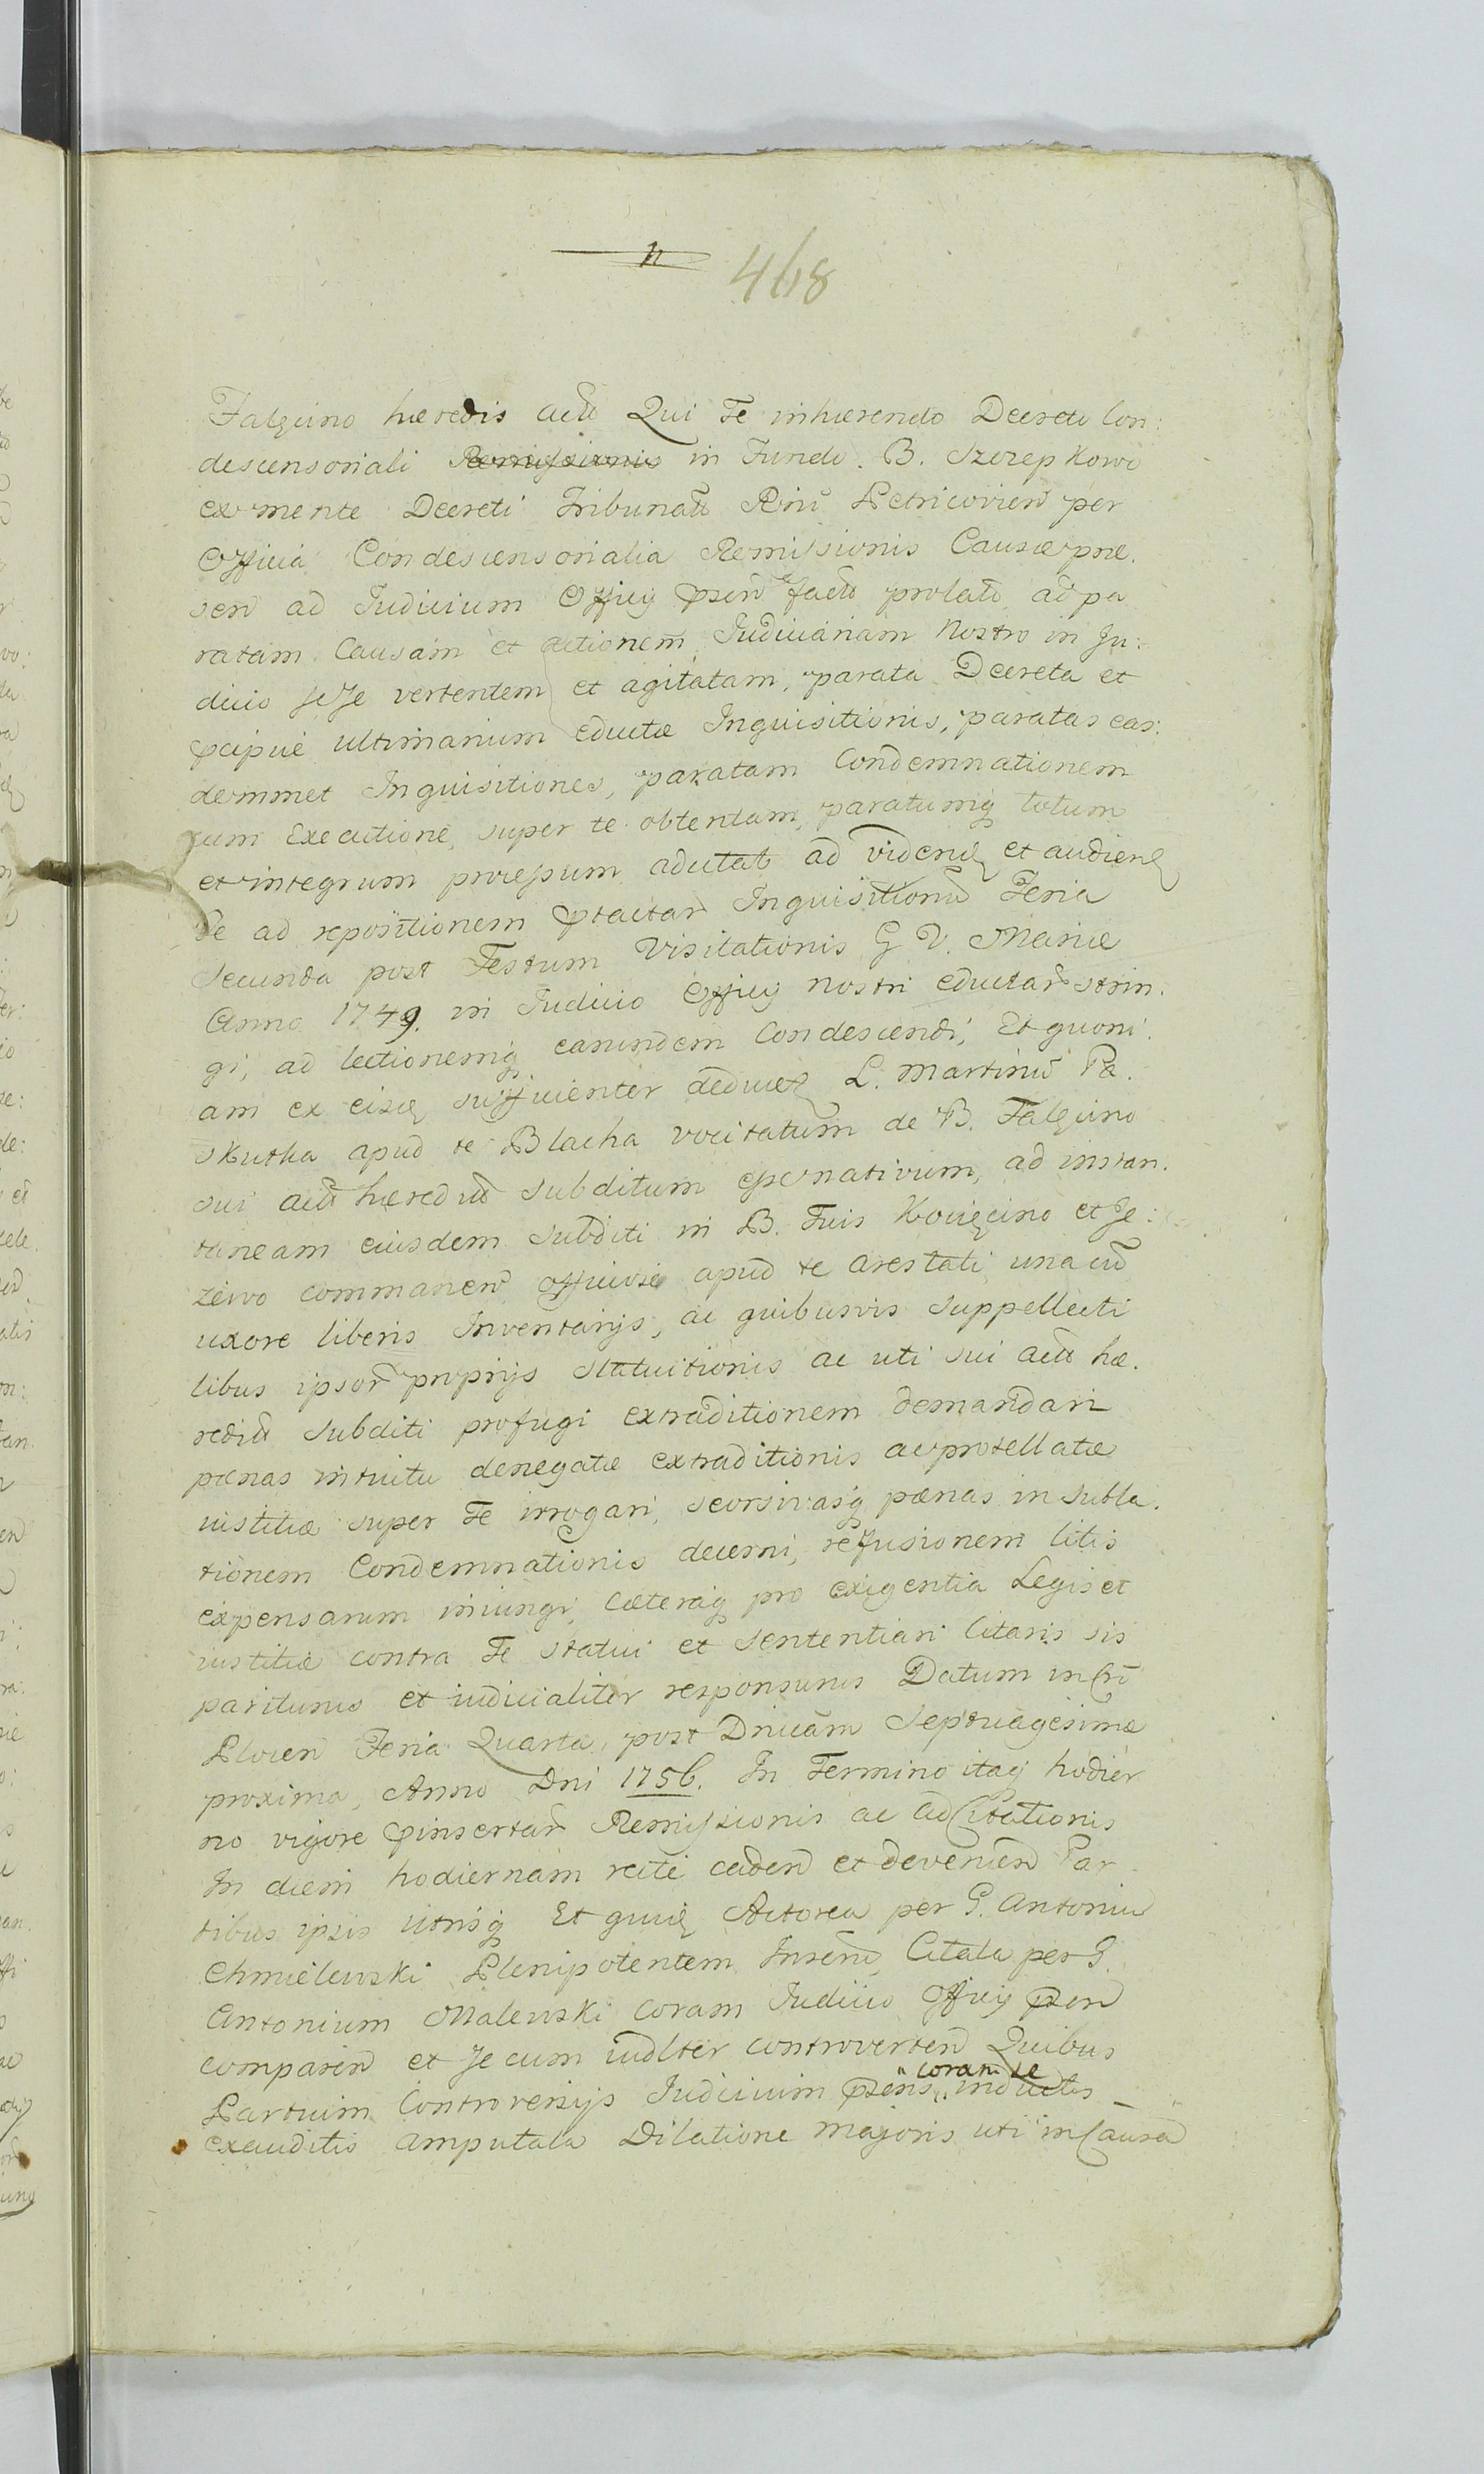 n 468
Falęcino hæredis actū Qui Te inhærendo Decreto Con:
descensoriali Remissionis in Fundo B. Szczepkowo
ex mente Decreti Tribunalū Rñi Petricovien̄ per
Officia Condescensorialia Remissionis Causæ præ.
sen̄ ad Judicium Officij p̄sen̄ factæ prolatō ad pa
ratam Causam et actionem Judiciariam Nostro in Ju:
dicio sese vertentem et agitatam, parata Decreta et
p̄cipue ultimarium eductæ Inquisitionis, paratas eas:
demmet Inquisitiones, paratam Condemnationem
cum Executione super te obtentam, paratumq̨ totum
et integrum processum adcitat ad videnđ et audienđ
Te ad repositionem p̄tactar̄ Inquisitionū Feria
Secunda post Festum Visitationis G V. Mariæ
Anno 1749. in Judicio Officij nostri eductar̄ strin.
gi, ad lectionemq̨ earundem Condescendi, Et quoni.
am ex eisđ sufficienter deducet̄ L. Martinū Pa.
skutka apud te Blacha vocitatum de B. Falęcino
sui actū hæredit̄ subditum esse nativum, ad instan.
taneam eiusdem subditi in B. Tuis Kocięcino et Je:
żewo commanen̄ officiose apud te arestati una cū
uxore liberis Inventarijs, ac quibusvis suppellecti
libus ipsor̄ proprijs statuitionis ac uti sui actū hæ.
redit̄ subditi profugi extraditionem demandari
pænas intuitu denegatæ extraditionis ac protellatæ
iustitiæ super Te irrogari, seorsivasq̨ pænas in subla.
tionem Condemnationis decerni, refusionem litis
expensarum iniungi, cæteraq̨ pro exigentia Legis et
iustitiæ contra Te statui et sententiari Citaris sis
pariturus et iudicialiter responsurus Datum in Crō
Plocen̄ Feria Quarta post Dnicam Septuagesimæ
proxima, Anno Dni 1756. In Termino itaq̨ hodier
no vigore p̄insertar̄ Remissionis ac adCitationis
In diem hodiernam recte caden̄ et devenien̄ Par
tibus ipsis utrisq̨ Et quiđ Actorea per G. Antoniū
Chmielewski Plenipotentem Citata per G.
Antonium Malewski coram Judicio Officij p̄sen̄
comparen̄ et secum iudlter controverten̄ Quibus
Partium Controversijs Judicium p̄sens „coram se inductis
exauditis amputata Dilatione majoris uti in Causa